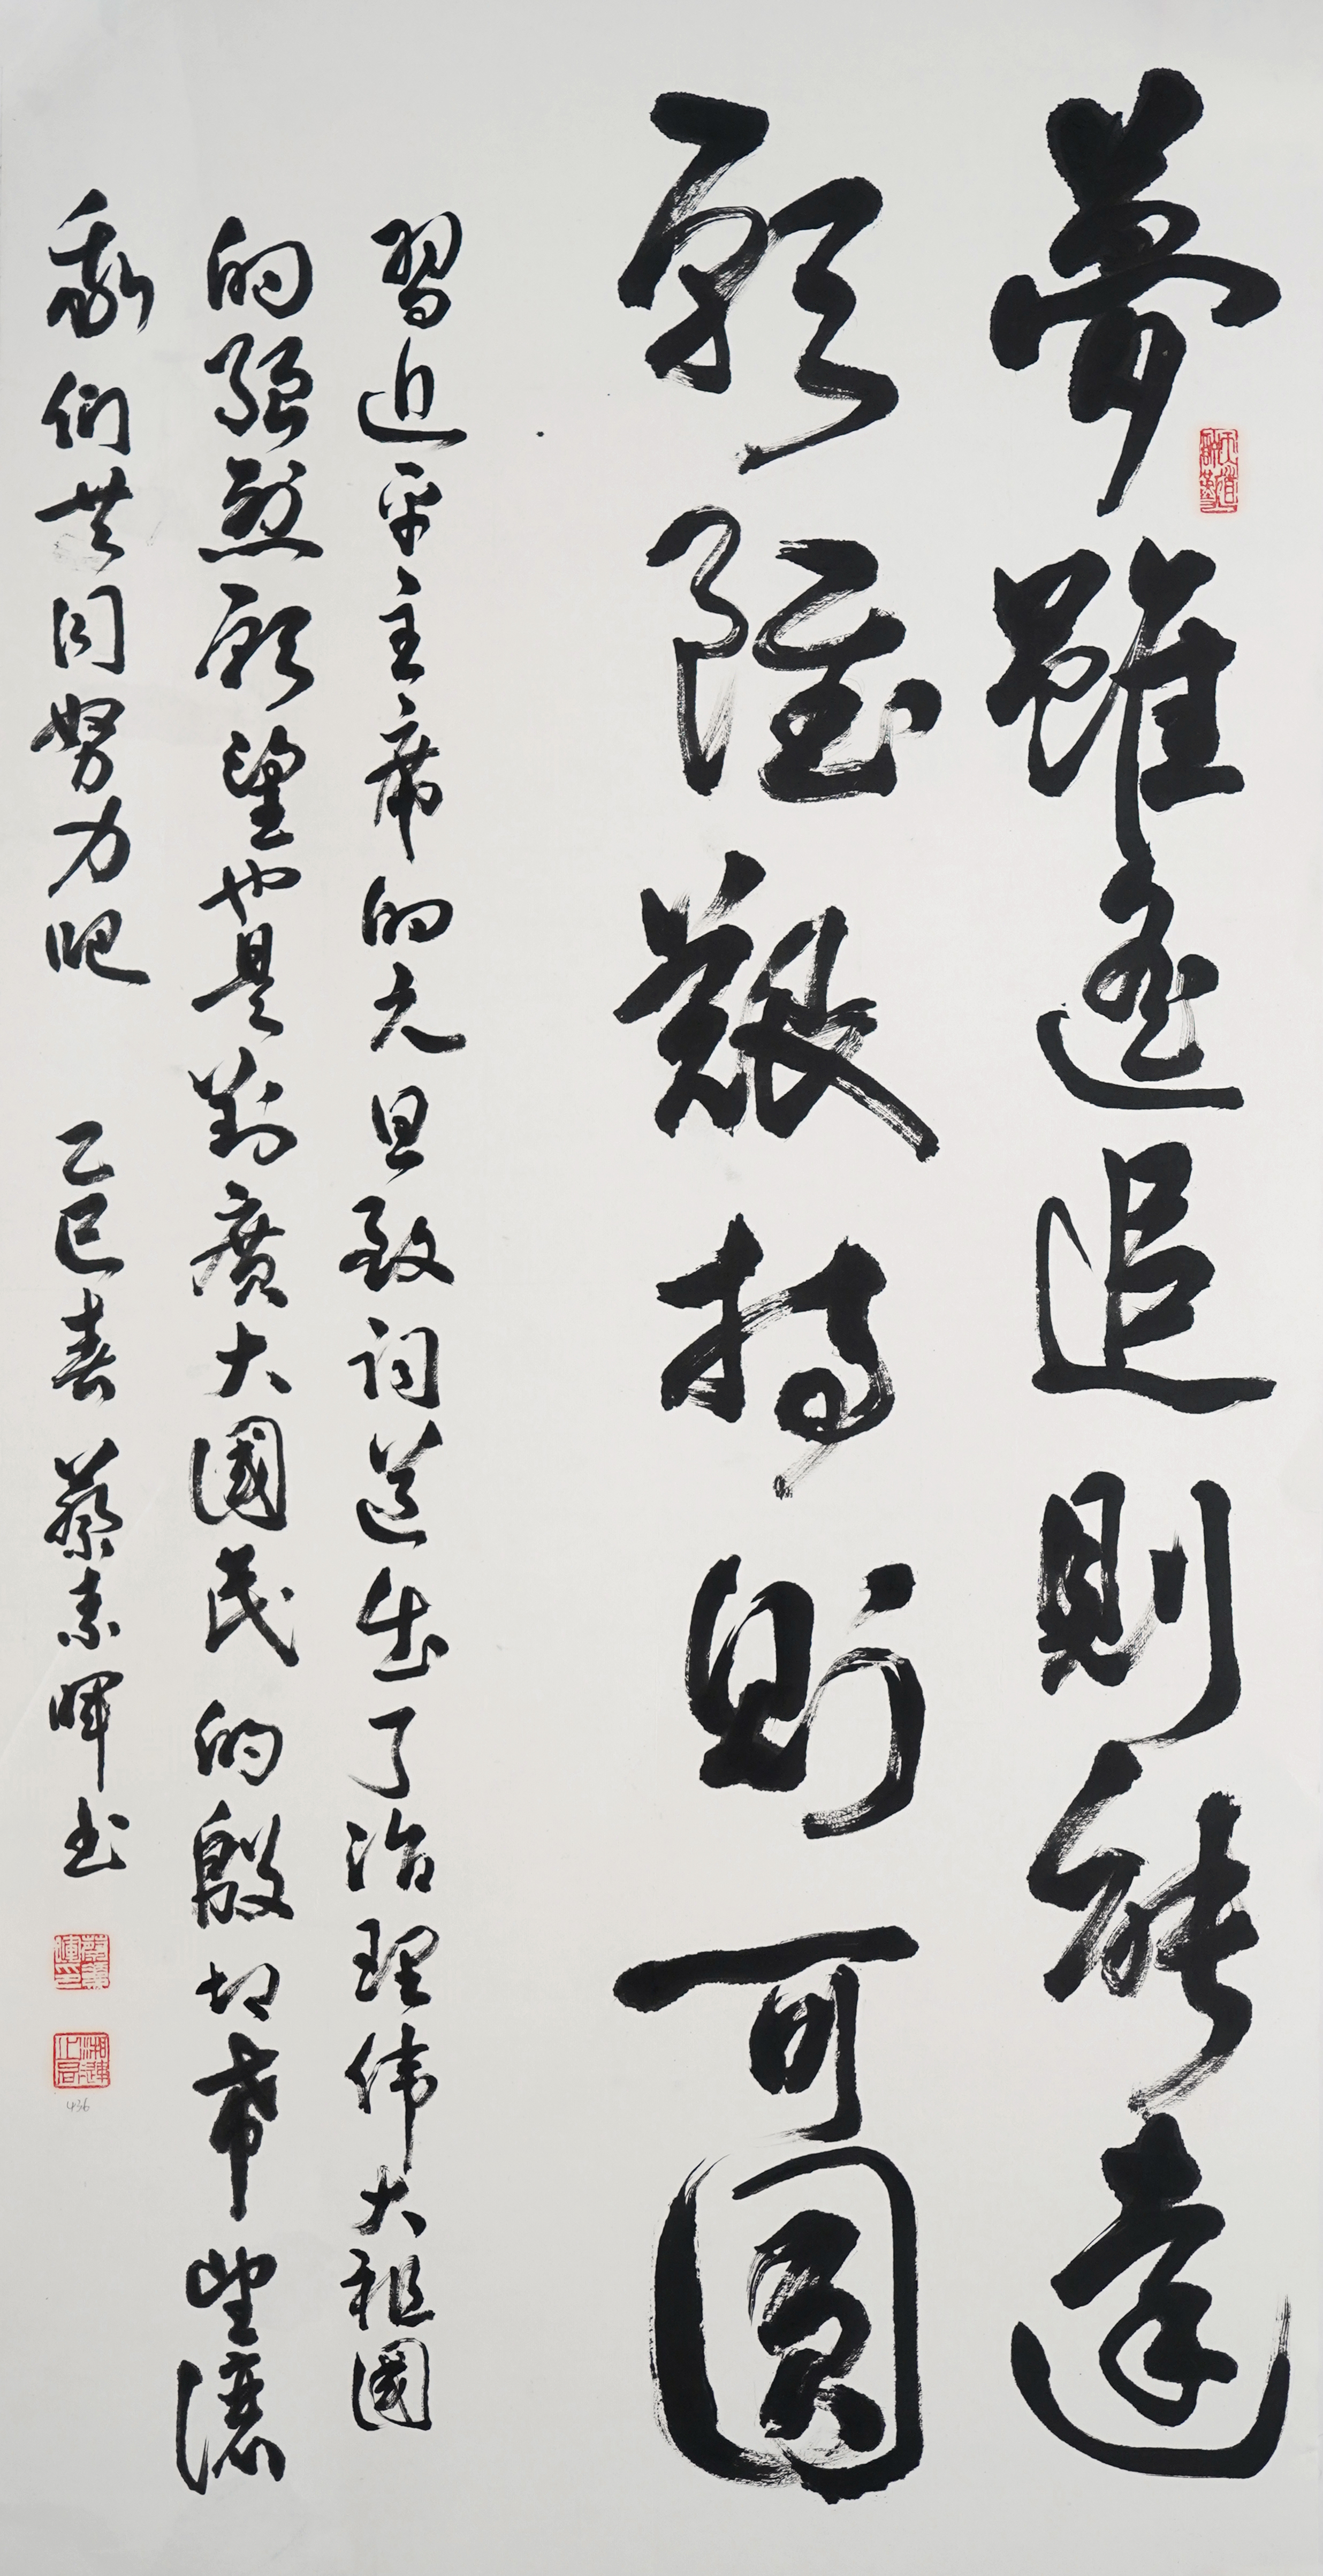 夢雖遥追則能達
願雖艱持則可圓
習近平主席的元旦致词道出了治理伟大祖國
的强烈願望也是對廣大國民的殷切希望讓
我们共同努力吧 乙巳春 蔡素暉书
天道酬勤